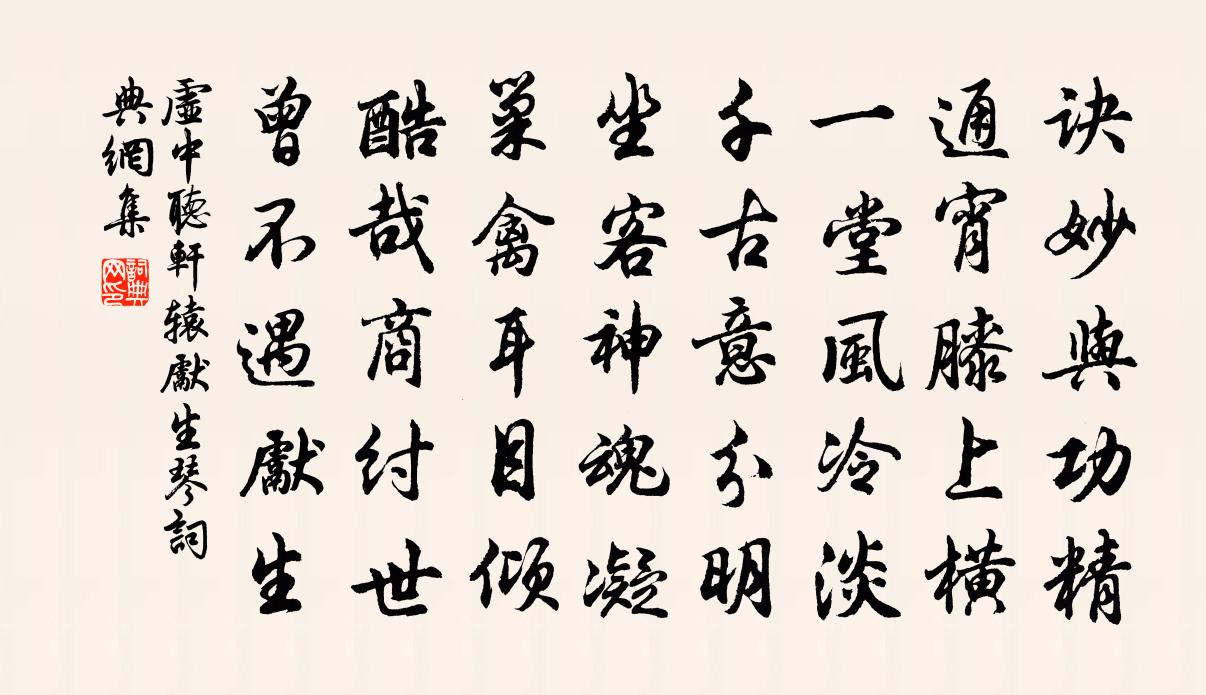 訣妙與功精
通宵膝上橫
一堂風冷淡
千古意分明
坐客神魂凝
巢禽耳目傾
酷哉商紂世
曾不遇獻生
虛中聽軒辕獻生琴詞
典網集
詞典网印